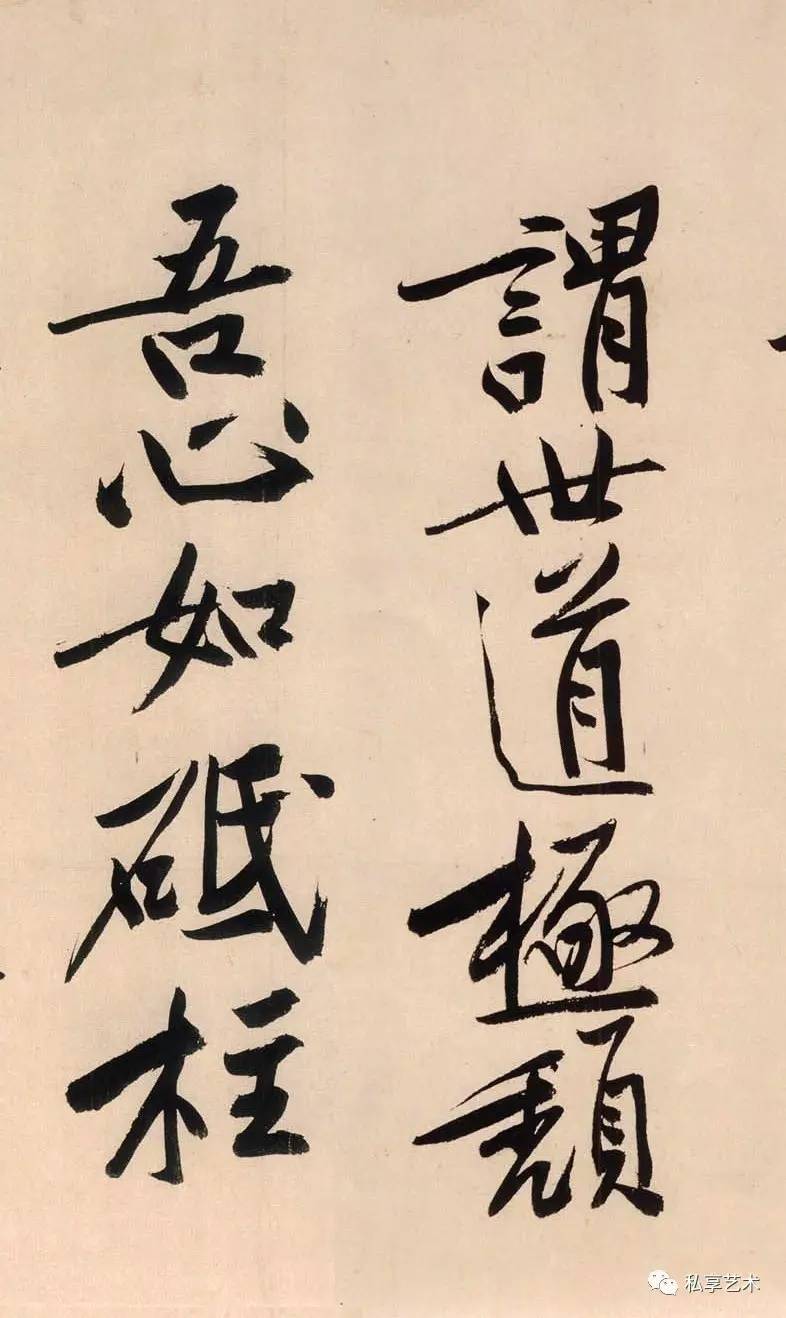 謂世道極頹
吾心如砥柱
私享艺术